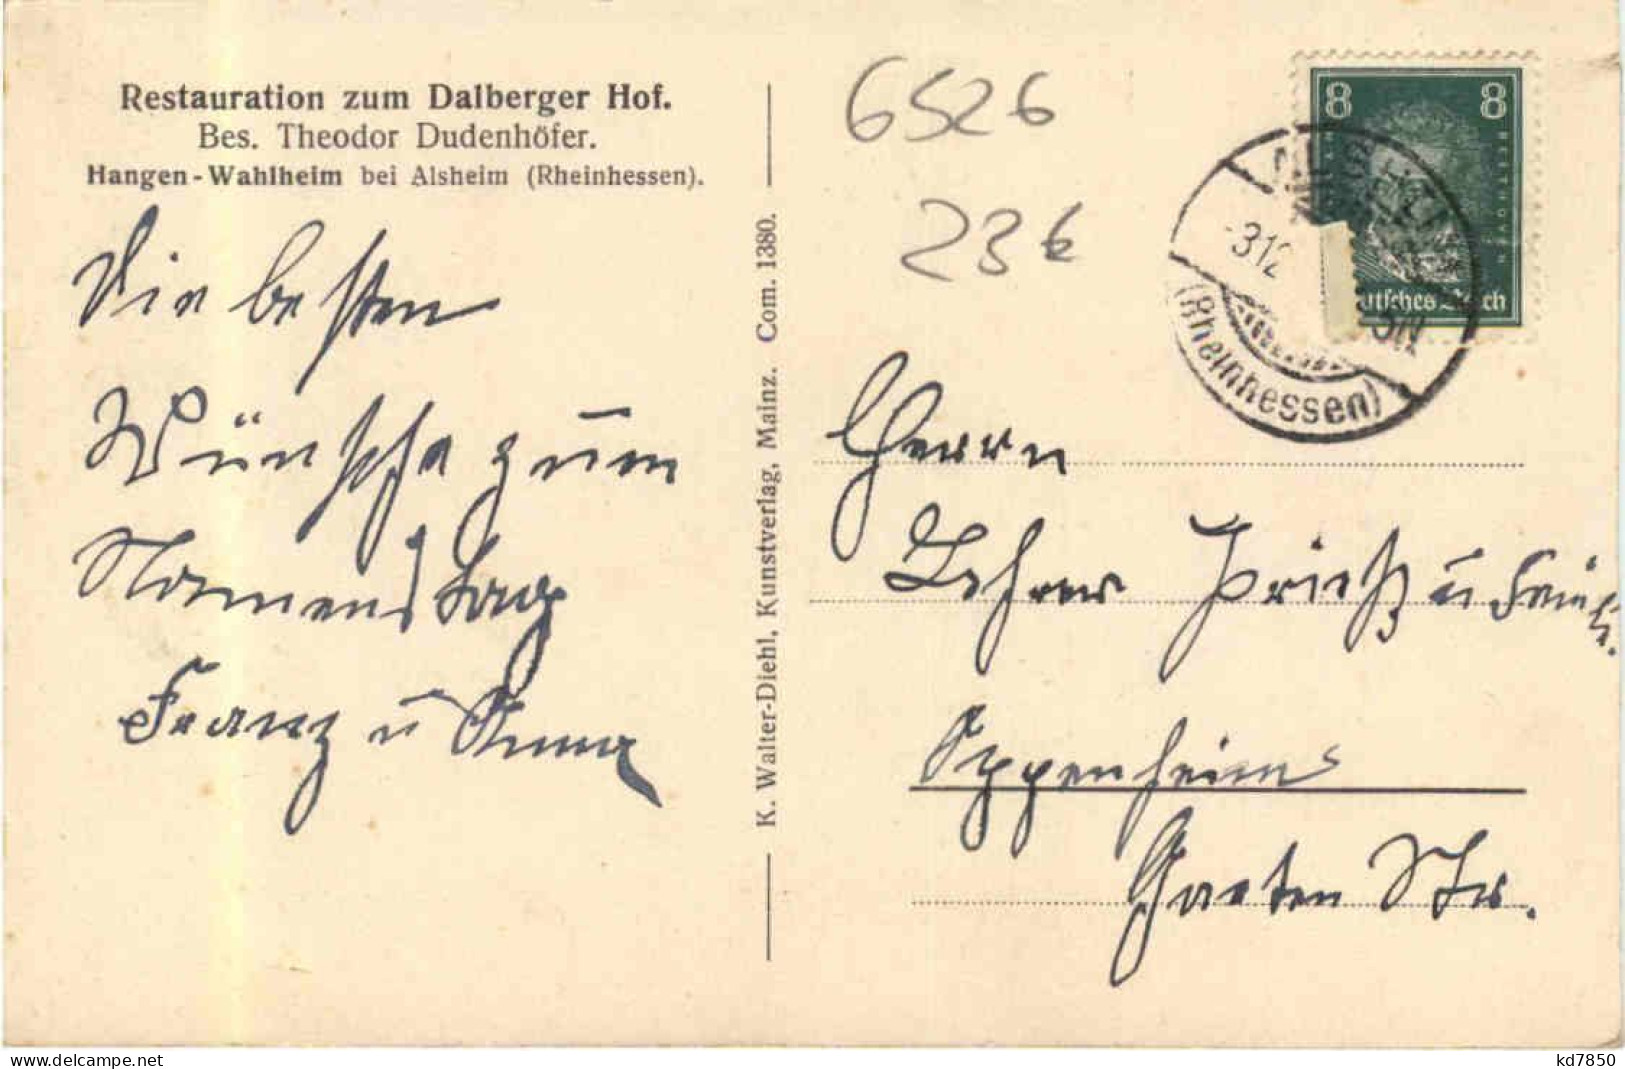 Restauration zum Dalberger Hof.
Bes. Theodor Dudenhöfer.
Hangen-Wahlheim bei Alsheim (Rheinhessen).
Die besten
Wünsche zum
Namenstag
Franz u Anna
K. Walter-Diehl, Kunstverlag, Mainz. Com. 1380.
6526
23€
8 8
BEETHOVEN
utsches Reich
-312
5N
(Rheinhessen)
Herrn
Lehrer Prieß u Familie.
Oppenheim
Garten Str.
kd7850
www.delcampe.net